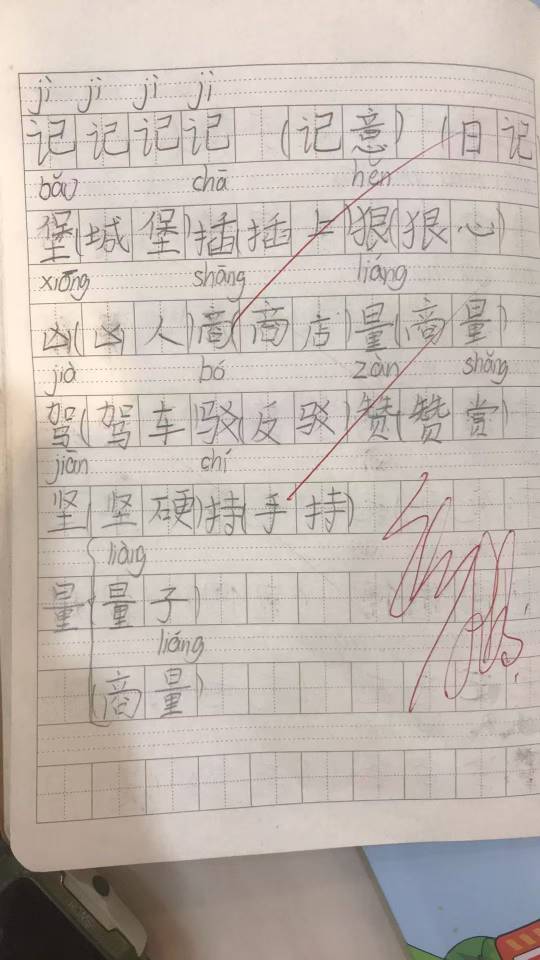 jì jì jì jì
记记记记 (记意) (日记
bǎo chā hěn
堡(城堡)插(插上狠(狠心)
xiōng shāng liáng
凶(凶人)商(商店)量(商量)
jià bó zàn shǎng
驾(驾车驳(反驳)赞(赞赏)
jiān chí
坚(坚硬)持(手持)
liàng
量{量子)
liáng
(商量)